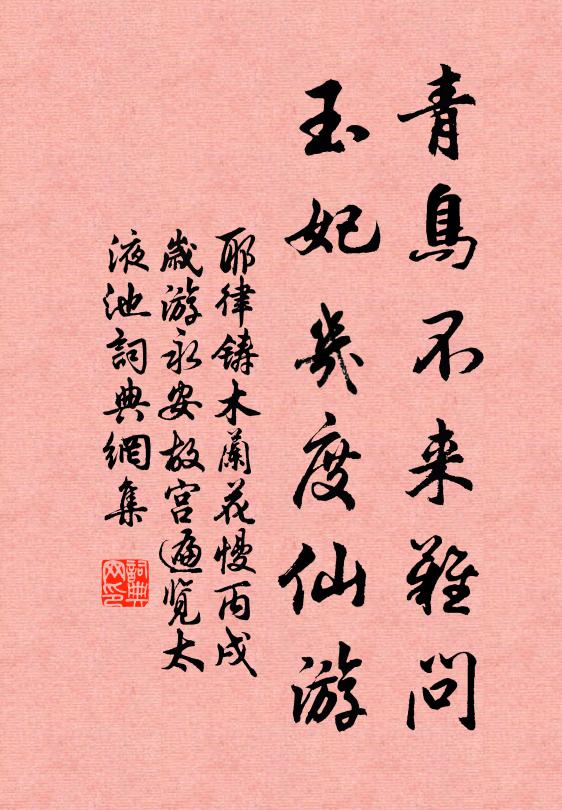 青鳥不来難問
玉妃幾度仙游
耶律鑄木蘭花慢丙戌
歲游永安故宮遍覧太
液池詞典網集
詞典网印